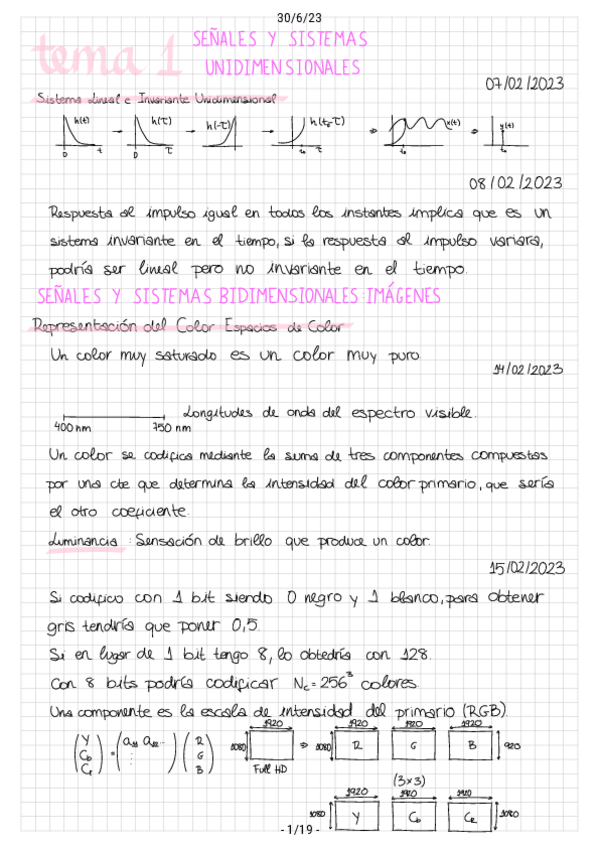 30/6/23
tema 1
SEÑALES Y SISTEMAS
UNIDIMENSIONALES
07/02/2023
Sistema Lineal e Invariante Unidimensional
h(t) → h(τ) → h(-τ) → h(t₀-τ) ⇒ x(t) ⇒ y(t)
0 t 0 τ t₀ τ t₀ t₀
08/02/2023
Respuesta al impulso igual en todos los instantes implica que es un
sistema invariante en el tiempo, si la respuesta al impulso variara,
podría ser lineal pero no invariante en el tiempo.
SEÑALES Y SISTEMAS BIDIMENSIONALES: IMÁGENES
Representación del Color Espacios de Color
Un color muy saturado es un color muy puro
14/02/2023
Longitudes de onda del espectro visible.
400 nm 750 nm
Un color se codifica mediante la suma de tres componentes compuestas
por una cte que determina la intensidad del color primario, que sería
el otro coeficiente.
Luminancia: Sensación de brillo que produce un color.
15/02/2023
Si codifico con 1 bit siendo 0 negro y 1 blanco, para obtener
gris tendría que poner 0,5.
Si en lugar de 1 bit tengo 8, lo obtedría con 128.
Con 8 bits podría codificar Nc = 256³ colores.
Una componente es la escala de intensidad del primario (RGB).
1920 1920 1920 1920
(Y Cb Cr) = (a₁₁ a₁₂ ...) (R G B) 1080 ⇒ 1080 R G B 920
Full HD
(3x3)
1920 1920 1920
1080 Y Cb CR 1080
- 1/19 -